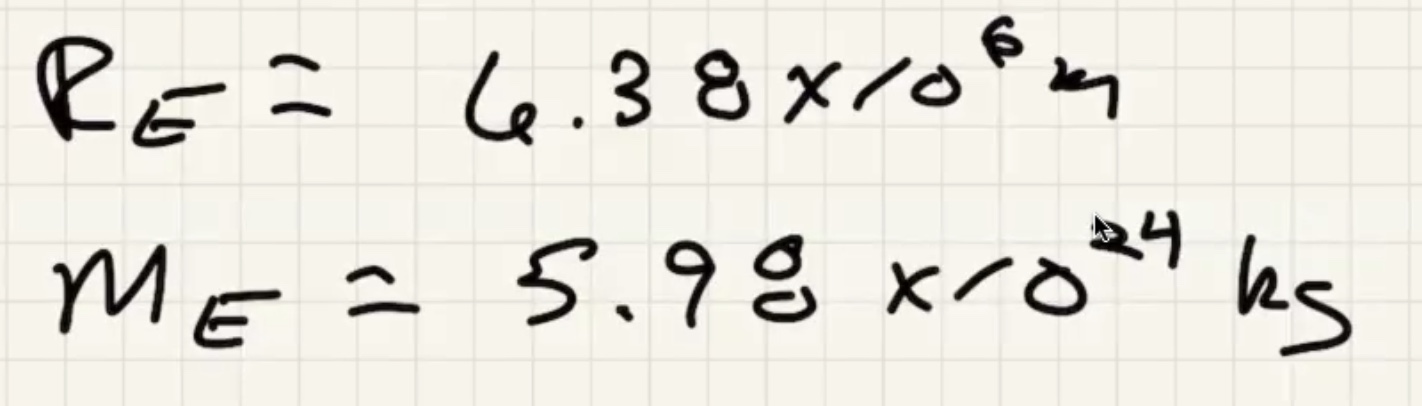 R_E = 6.38 x 10^6 m
M_E = 5.98 x 10^24 kg